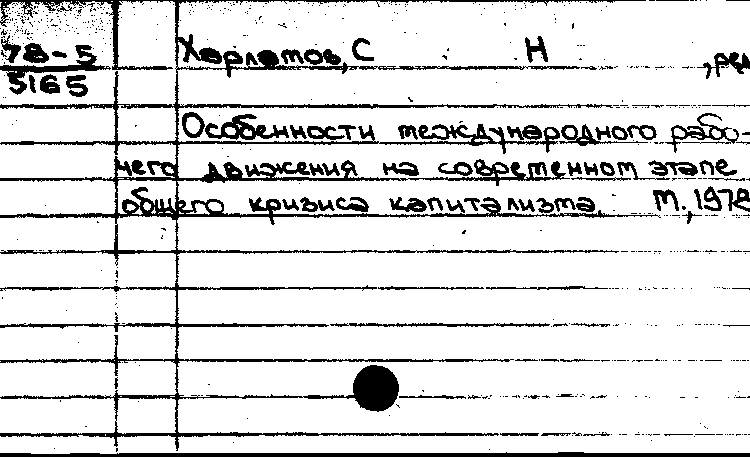 78-5
5165
Харламов, С Н , ред
Особенности международного рабо-
чего движения на современном этапе
общего кризиса капитализма. М., 1978